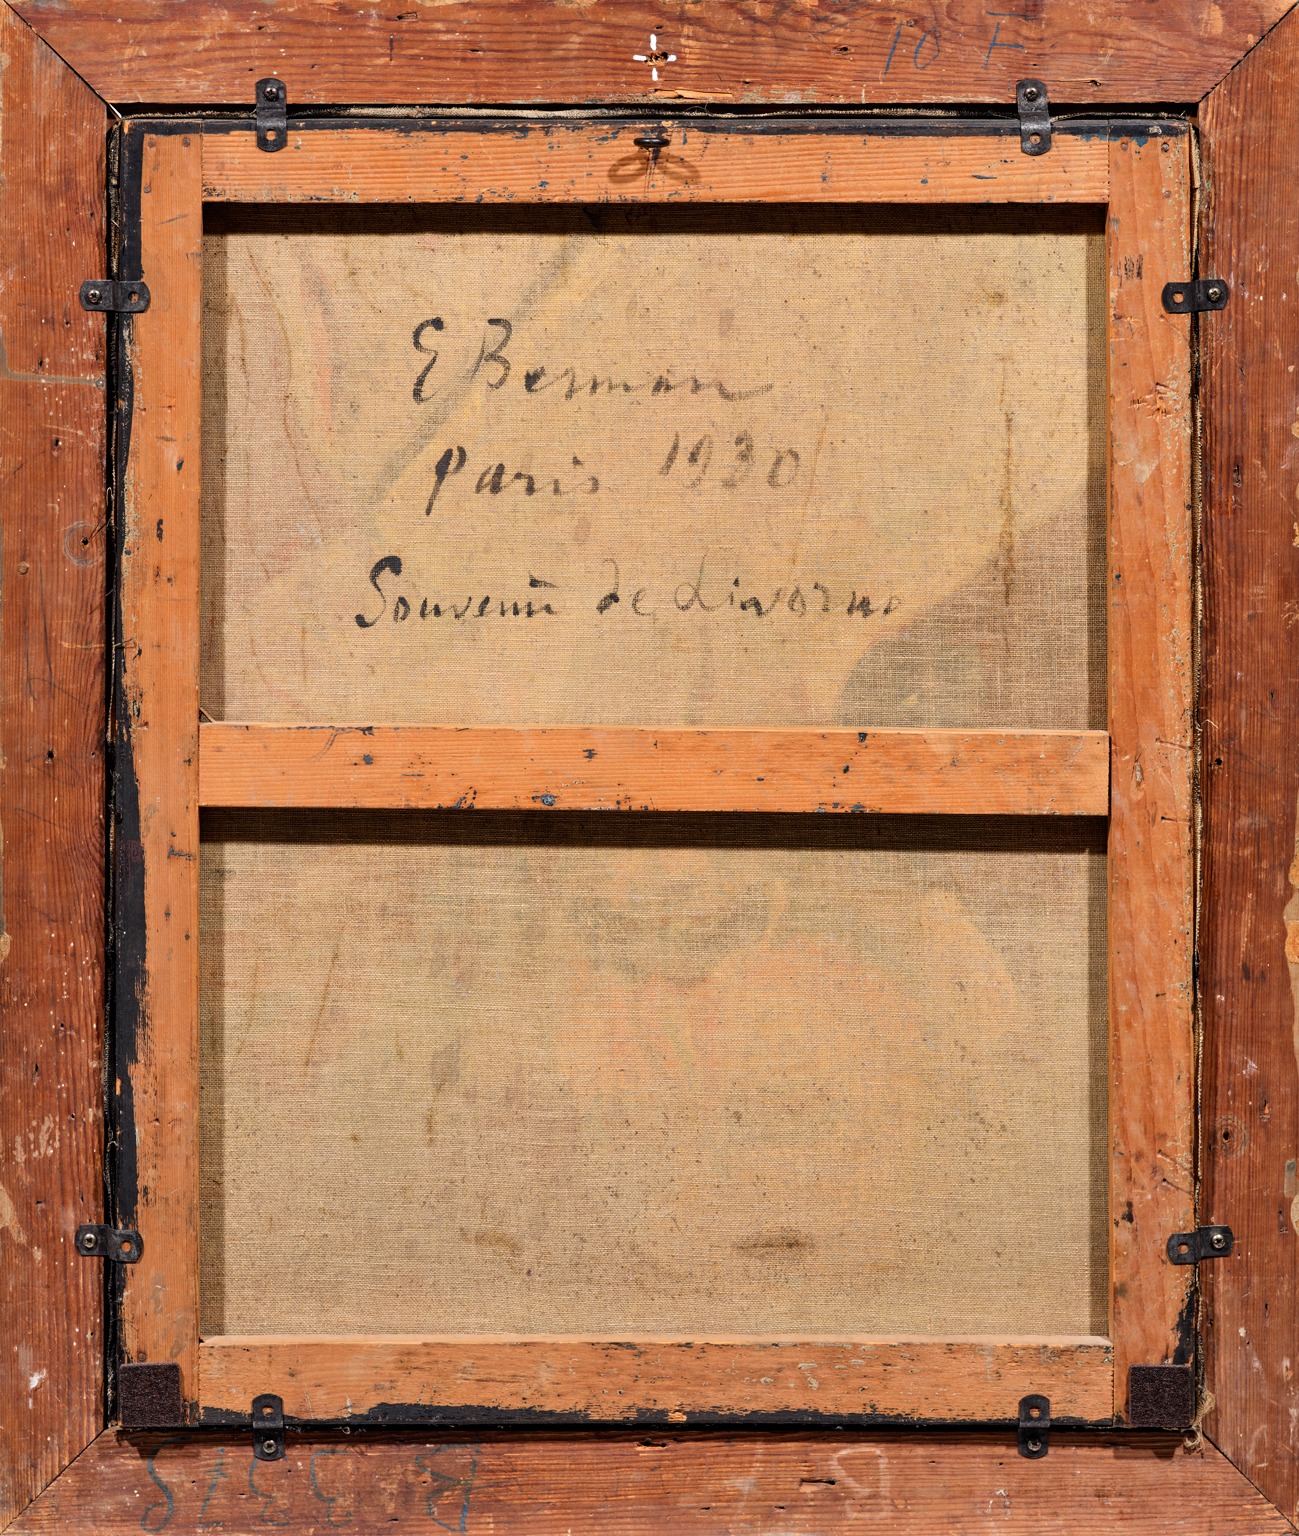 10 F
E Berman
Paris 1930
Souvenir de Livorno